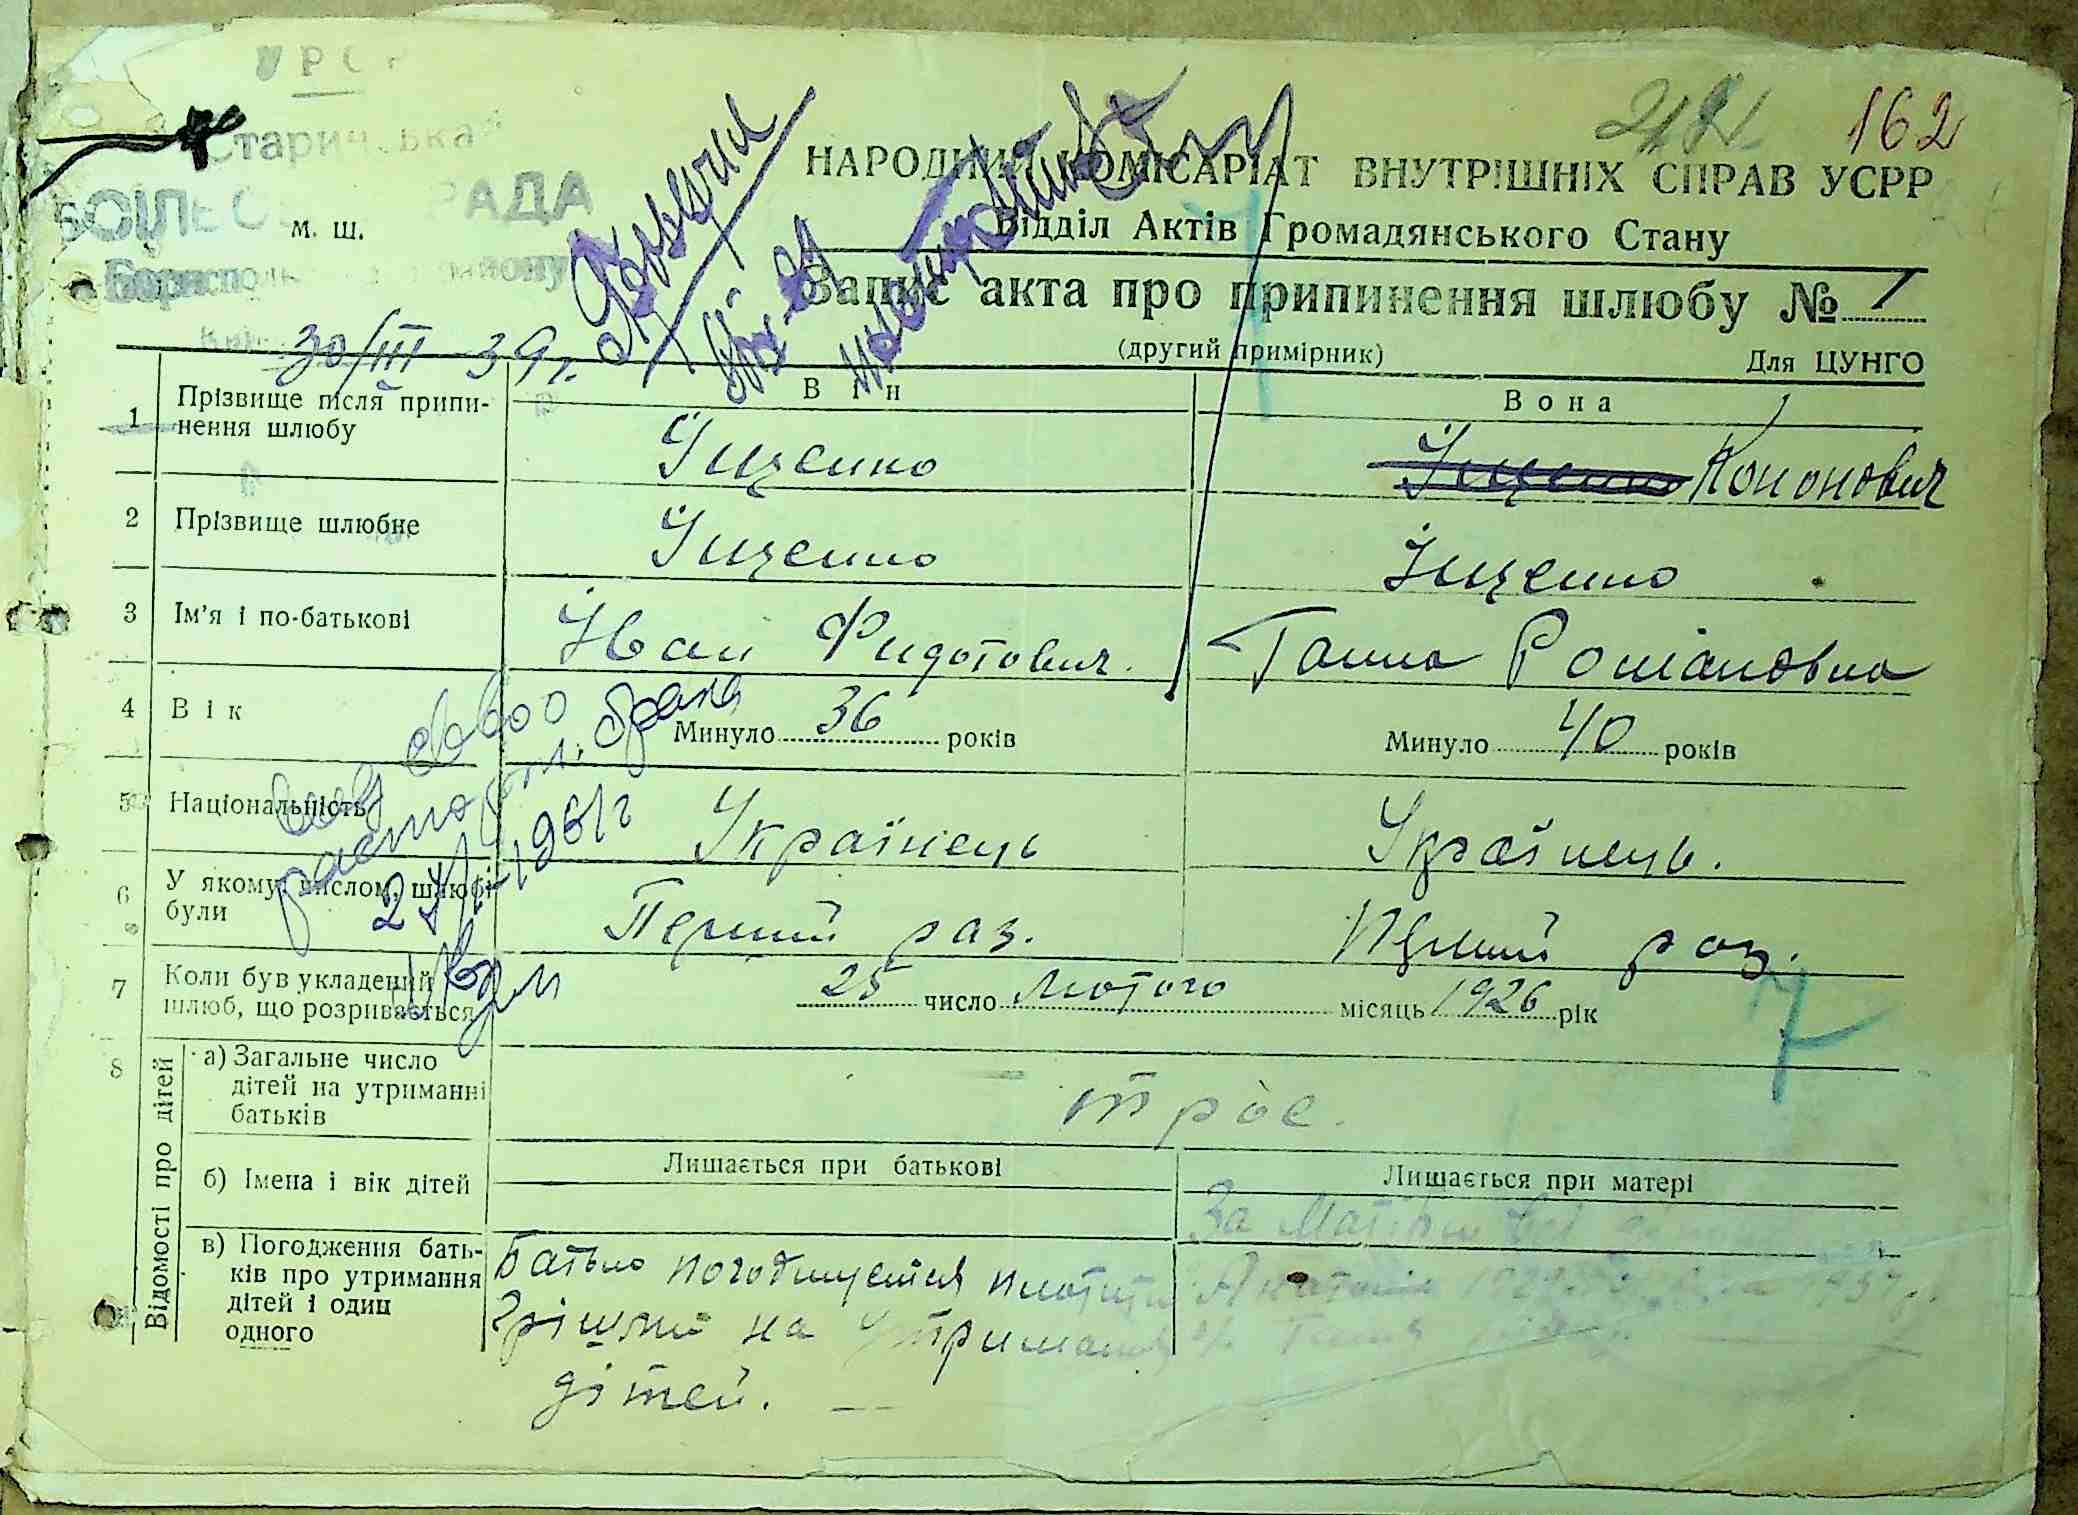 162
УРСР
Старицька
СІЛЬСЬКА РАДА
м. ш.
Бориспольського району
30/III 39 г.
НАРОДНИЙ КОМІСАРІАТ ВНУТРІШНІХ СПРАВ УСРР
Відділ Актів Громадянського Стану
Запис акта про припинення шлюбу № 1
(другий примірник)
Для ЦУНГО
Він
Вона
1 Прізвище після припи-
нення шлюбу
Іщенко
Іщенко Кононович
2 Прізвище шлюбне
Іщенко
Іщенко
3 Ім'я і по-батькові
Іван Фидотович.
Ганна Романовна
4 Вік
Минуло 36 років
Минуло 40 років
5 Національність
Українець
Українець.
6 У якому числом, шлюбі
були
Перший раз.
Перший раз.
7 Коли був укладений
шлюб, що розривається
25 число лютого місяць 1926 рік
8 Відомості про дітей
а) Загальне число
дітей на утриманні
батьків
троє.
б) Імена і вік дітей
Лишається при батькові
Лишається при матері
За Матірю всі
в) Погодження бать-
ків про утримання
дітей і один
одного
Батько погоджуется платити
грішми на утримання
дітей.
брака
1961 г